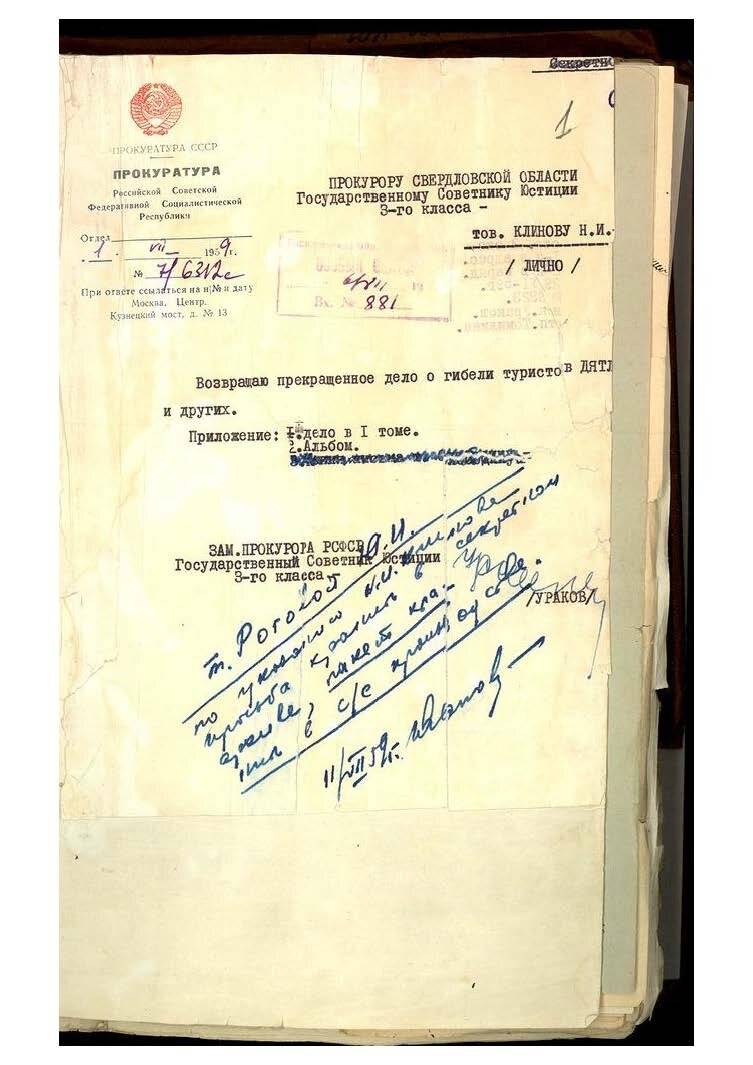 Секретно
1
ПРОКУРАТУРА СССР
ПРОКУРАТУРА
Российской Советской
Федеративной Социалистической
Республики
Отдел
1 VII 1959г.
№ 7/6312с
При ответе ссылаться на № и дату
Москва, Центр.
Кузнецкий мост, д. № 13
ПРОКУРОРУ СВЕРДЛОВСКОЙ ОБЛАСТИ
Государственному Советнику Юстиции
3-го класса -
тов. КЛИНОВУ Н.И.
/ ЛИЧНО /
Вх. № 881
Возвращаю прекращенное дело о гибели туристов ДЯТЛ
и других.
Приложение: 1.дело в I томе.
2.Альбом.
ЗАМ.ПРОКУРОРА РСФСР
Государственный Советник Юстиции
3-го класса
/УРАКОВ/
т. Роговой
по указанию Н.И. Клинова
просьба хранить в секретном
архиве, пакет
в с/с производстве.
11/VII 59г. Иванов